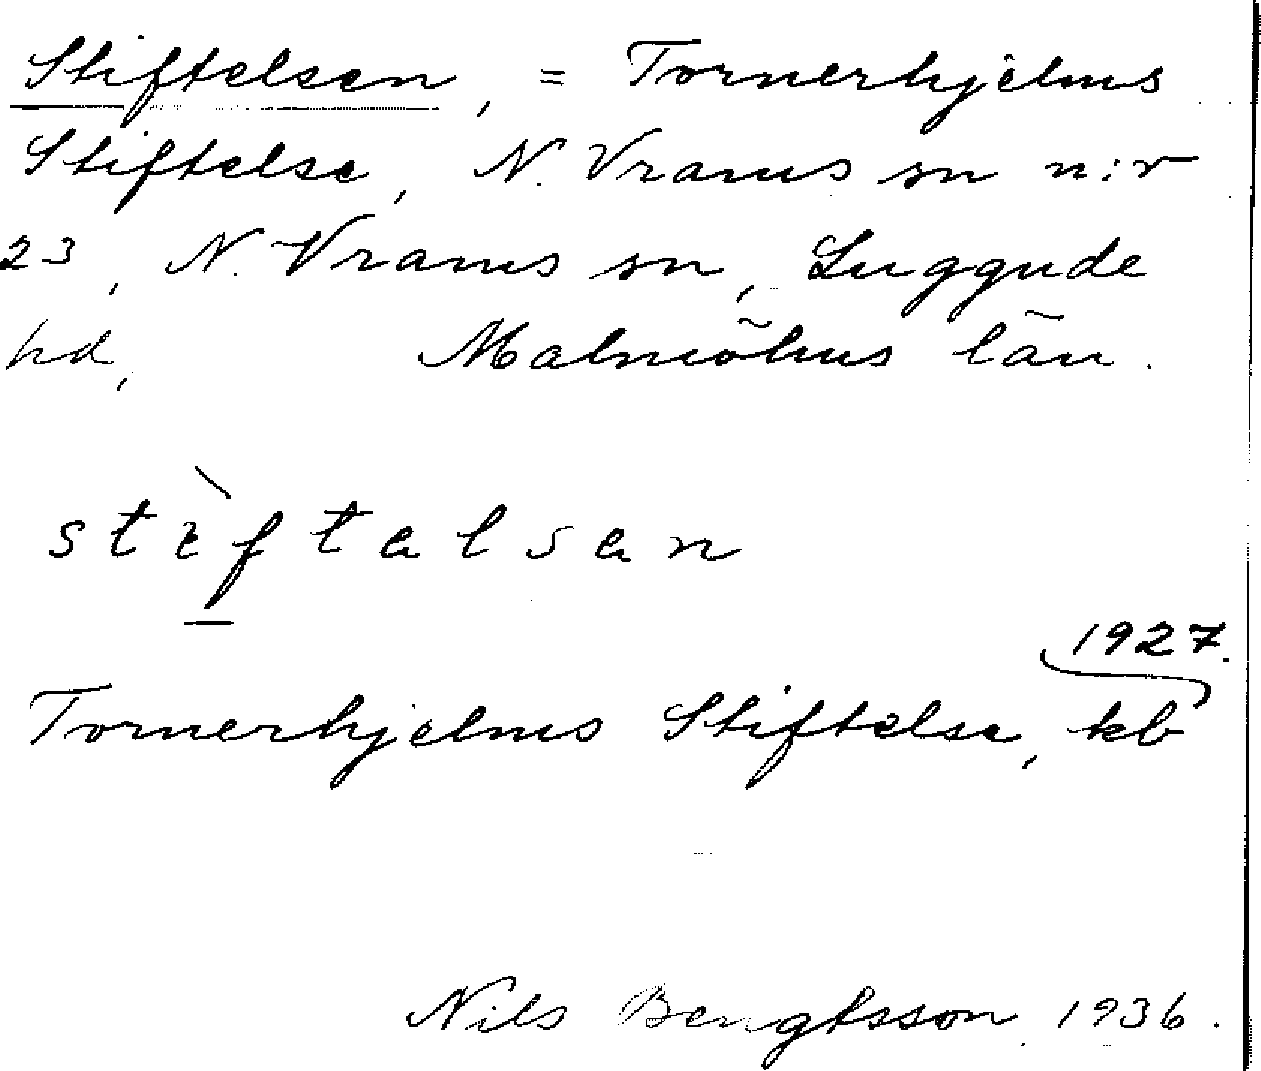 Stiftelsen, = Tornerhjelms
Stiftelse, N. Vrams sn n:r
23, N. Vrams sn, Luggude
hd, Malmöhus län.
stèftalsan
1927.
Tornerhjelms Stiftelse, kb
Nils Bengtsson 1936.